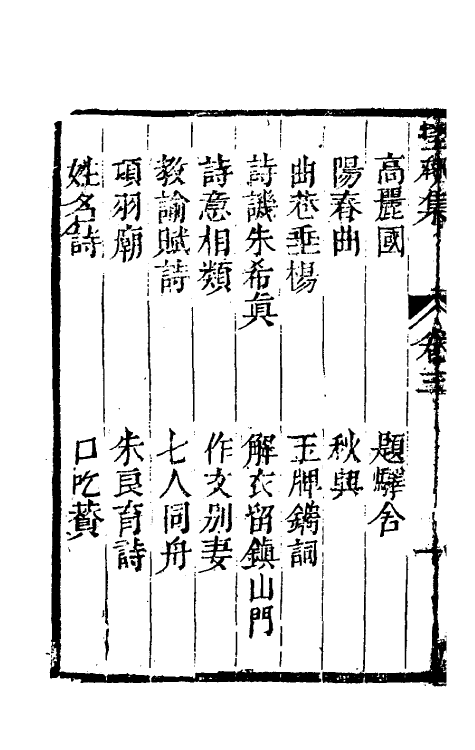 高麗國 題驛舍
陽春曲 秋興
曲巷垂楊 玉牌鐫詞
詩譏朱希眞 解衣留鎮山門
詩意相類 作文別妻
教諭賦詩 七人同舟
項羽廟 朱良育詩
姓名詩 口吃贊
集 卷三